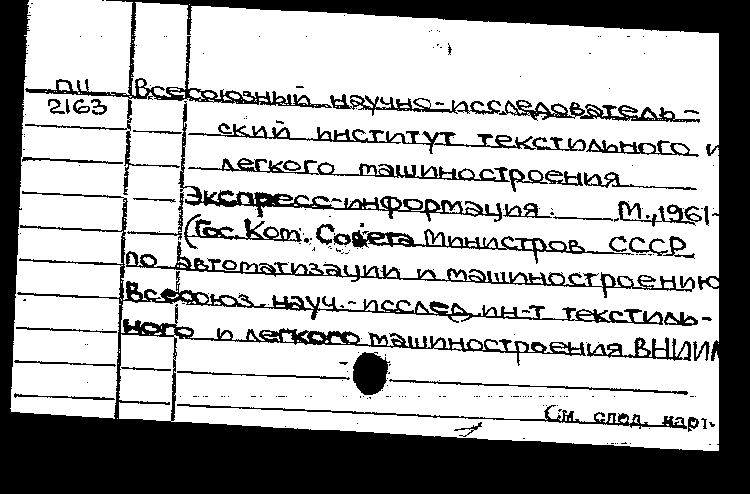 ПЦ Всесоюзный научно-исследователь-
2163
ский институт текстильного и
легкого машиностроения
Экспресс-информация. М., 1961-
(Гос. Ком. Совета Министров СССР
по автоматизации и машиностроению
Всесоюз. науч.-исслед. ин-т текстиль-
ного и легкого машиностроения ВНИИ
См. след. карт.